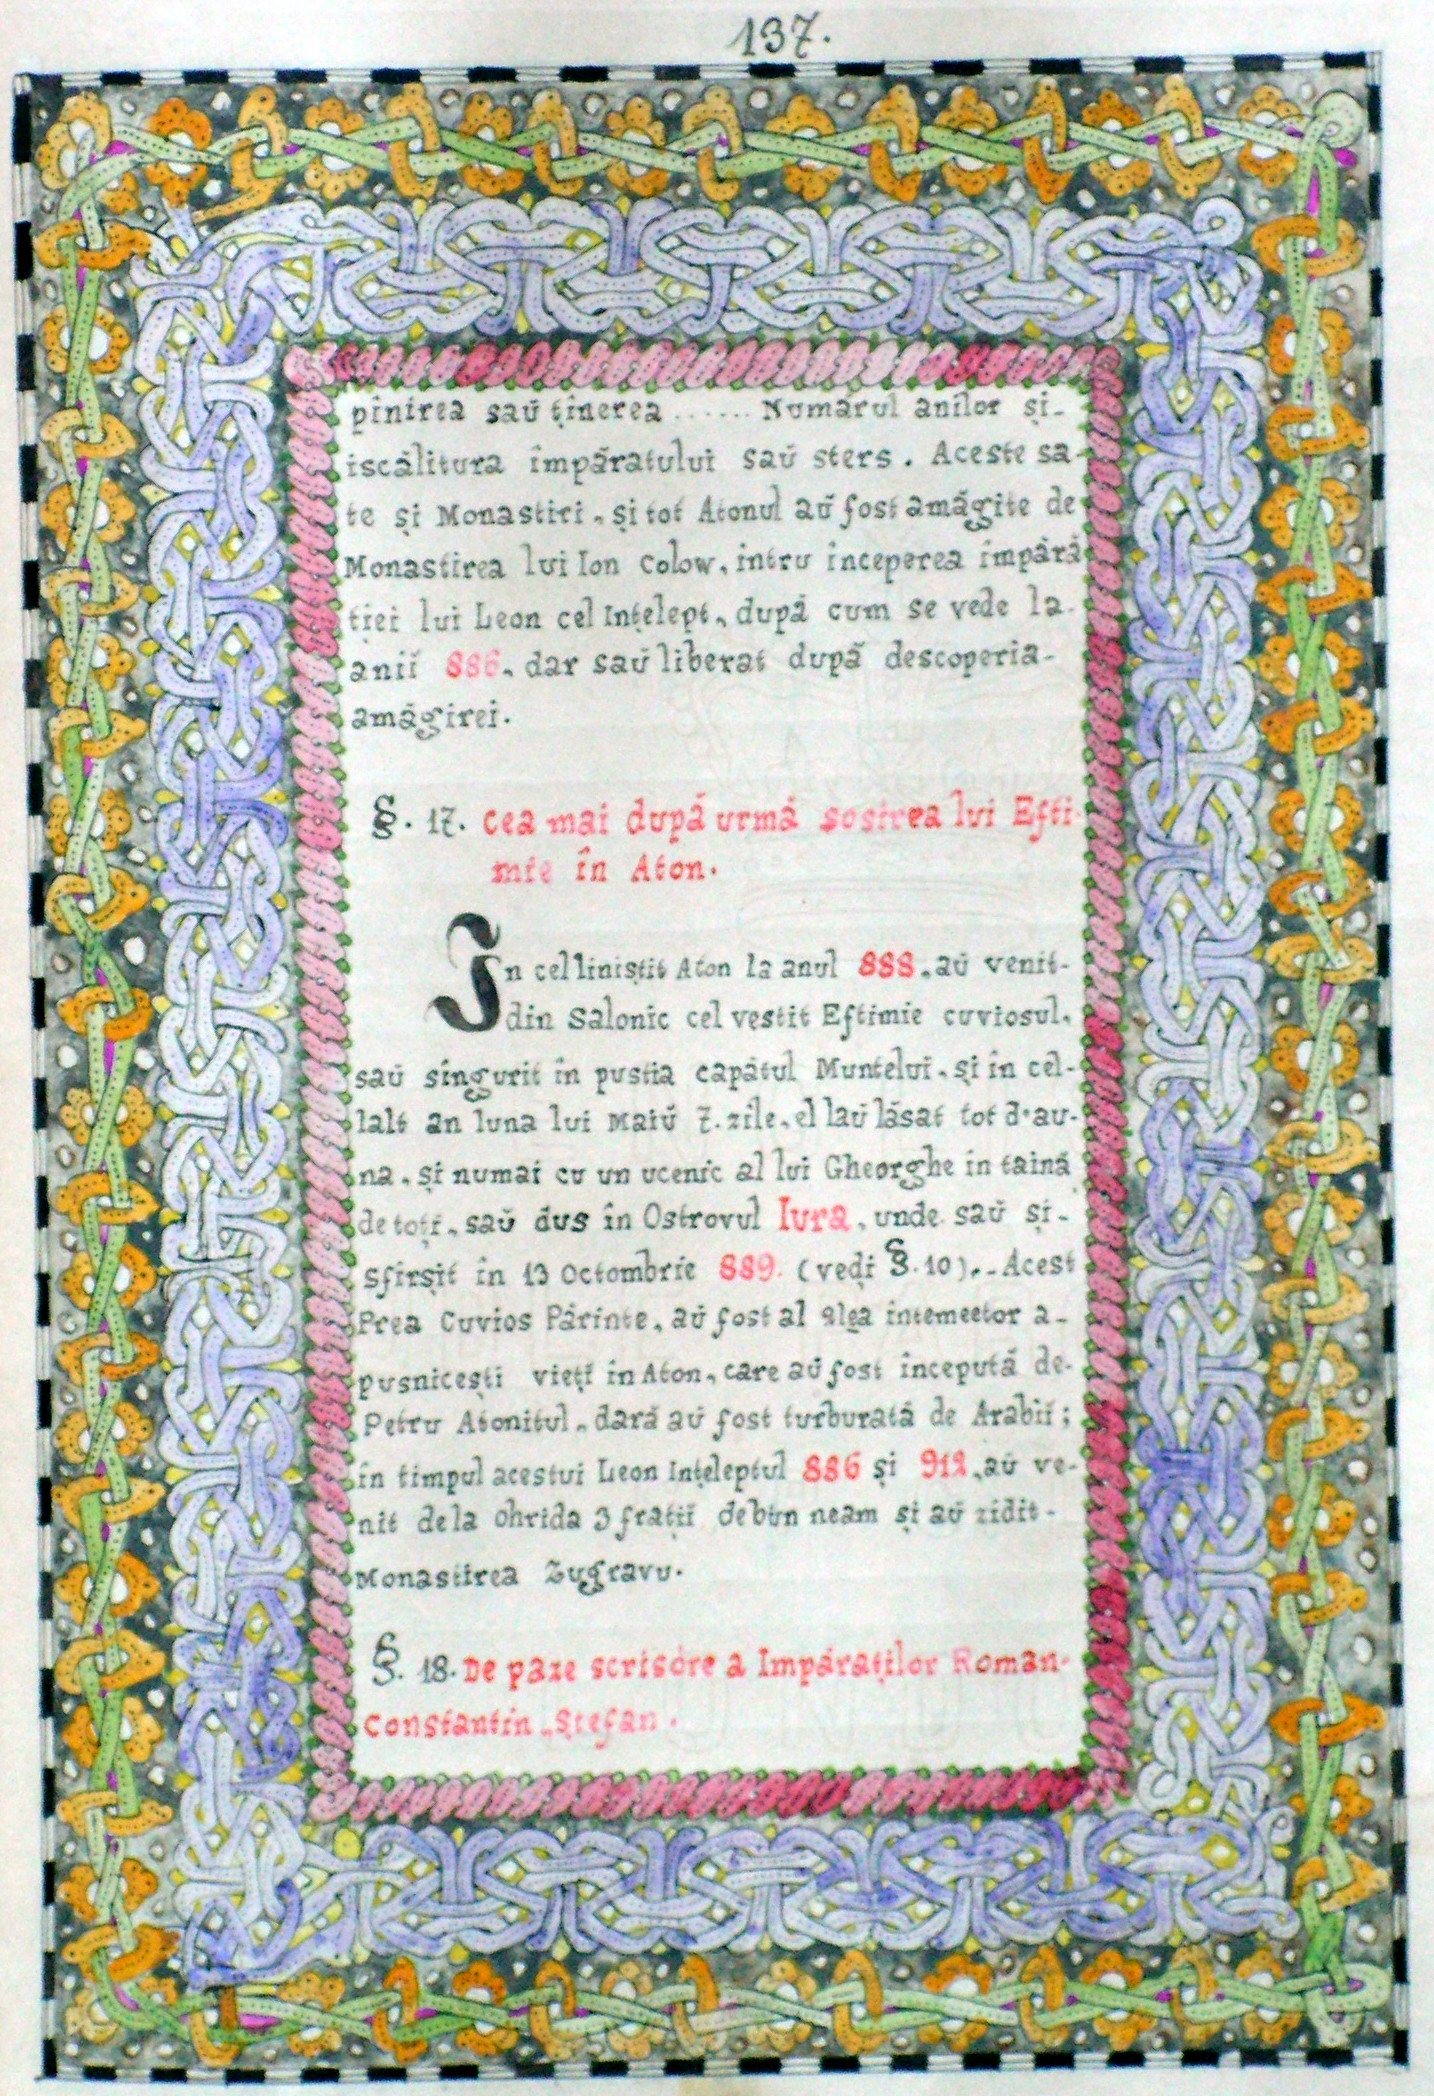 137.
pînirea saŭ ținerea ...... Numărul anilor și-
iscălitura împăratului saŭ sters. Aceste sa-
te și Monastiri, și tot Atonul aŭ fost amăgite de
Monastirea lui Ion Colow, intru inceperea împără
ției lui Leon cel Ințelept, după cum se vede la
anii 886, dar saŭ liberat după descoperia-
amăgirei.
§. 17. Cea mai după urmă sosirea lui Efti-
mie în Aton.
In cel liniștit Aton la anul 888, aŭ venit-
din Salonic cel vestit Eftimie cuviosul,
saŭ singurit în pustia capătul Muntelui, și in cel-
lalt an luna lui Maiŭ 7. zile, el laŭ lăsat tot d'au-
na, și numai cu un ucenic al lui Gheorghe in taină
de toți, saŭ dus în Ostrovul Iura, unde saŭ și-
sfirșit în 13 Octombrie 889. (vedi §. 10).- Acest
Prea Cuvios Părinte, aŭ fost al 2lea intemeetor a-
pusnicești vieți în Aton, care aŭ fost începută de-
Petru Atonitul, dară aŭ fost turburată de Arabii;
în timpul acestui Leon Ințeleptul 886 și 912, aŭ ve-
nit dela Ohrida 3 frații de bun neam și aŭ zidit-
Monastirea Zugravu.
§. 18. De paze scrisóre a Impăraților Roman-
Constantin, Ștefan.